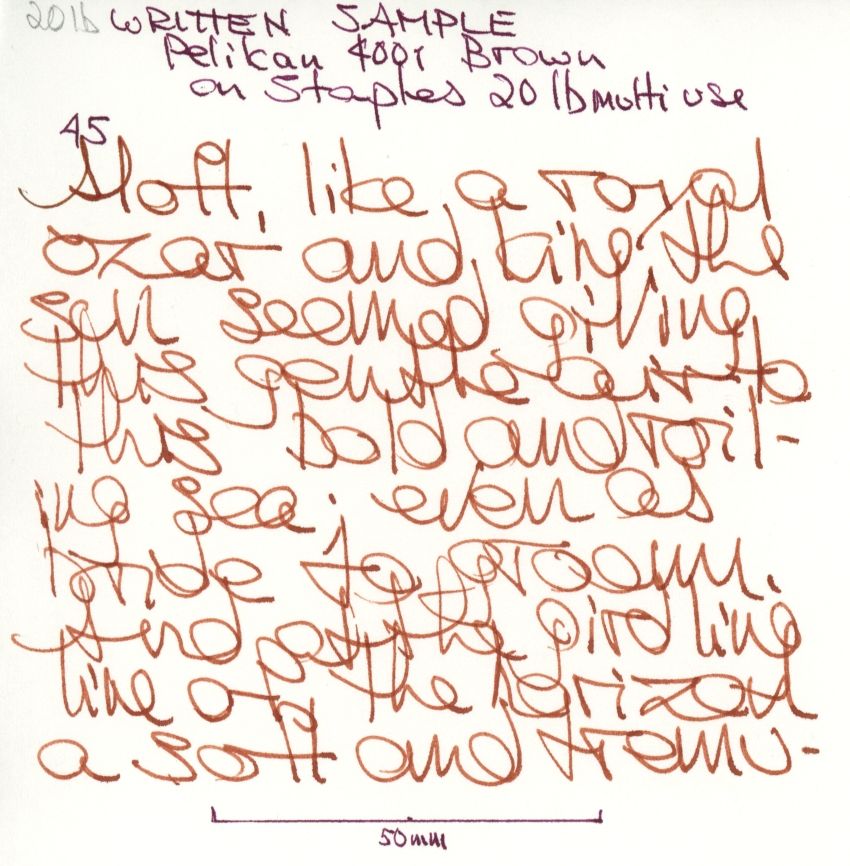 20lb WRITTEN SAMPLE
Pelikan 4001 Brown
on Staples 20 lb multi use
45
Aloft, like a royal
czar and king, the
sun seemed giving
this gentle air to
this bold and roll-
ing sea; even as
bride to groom.
And at the girdling
line of the horizon
a soft and tremu-
50mm